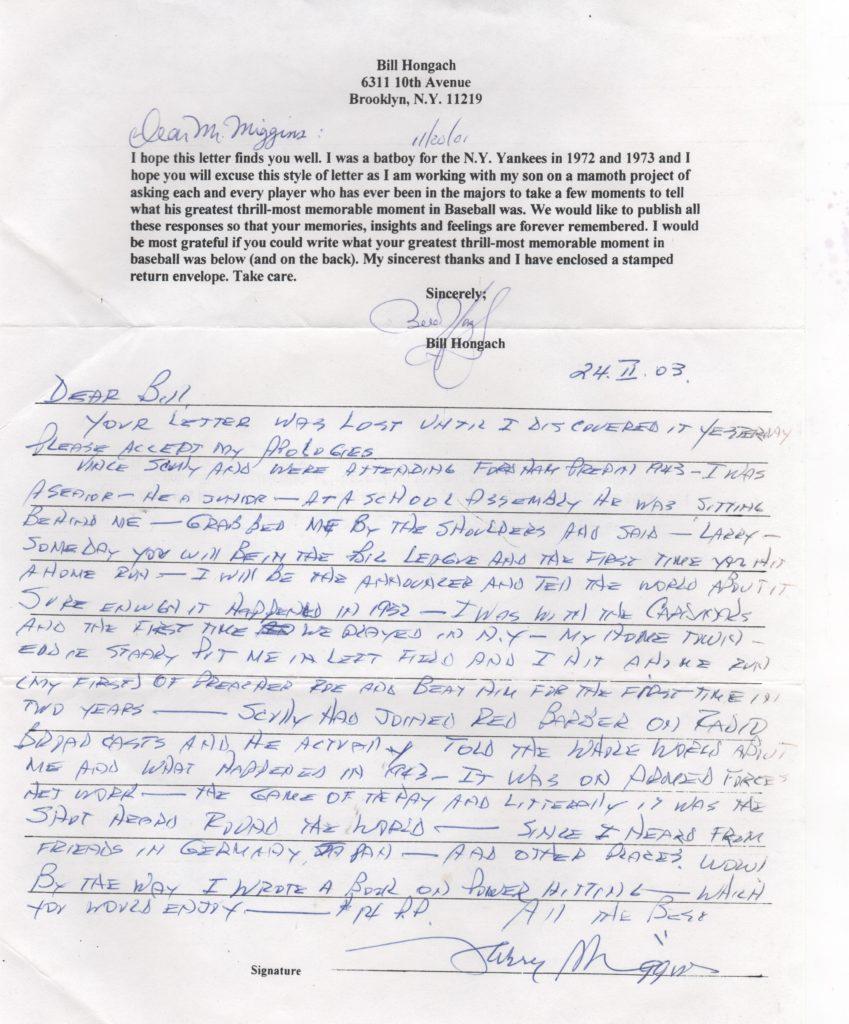 Bill Hongach
6311 10th Avenue
Brooklyn, N.Y. 11219
Dear Mr. Miggins: 11/20/01
I hope this letter finds you well. I was a batboy for the N.Y. Yankees in 1972 and 1973 and I
hope you will excuse this style of letter as I am working with my son on a mammoth project of
asking each and every player who has ever been in the majors to take a few moments to tell
what his greatest thrill-most memorable moment in Baseball was. We would like to publish all
these responses so that your memories, insights and feelings are forever remembered. I would
be most grateful if you could write what your greatest thrill-most memorable moment in
baseball was below (and on the back). My sincerest thanks and I have enclosed a stamped
return envelope. Take care.
Sincerely;
Bill Hongach
24.II.03.
DEAR BILL,
YOUR LETTER WAS LOST UNTIL I DISCOVERED IT YESTERDAY
PLEASE ACCEPT MY APOLOGIES
VINCE SCULLY AND WERE ATTENDING FORDHAM PREP IN 1943 - I WAS
A SENIOR - HE A JUNIOR - AT A SCHOOL ASSEMBLY HE WAS SITTING
BEHIND ME - GRABBED ME BY THE SHOULDERS AND SAID - LARRY -
SOMEDAY YOU WILL BE IN THE BIG LEAGUE AND THE FIRST TIME YOU HIT
A HOME RUN - I WILL BE THE ANNOUNCER AND TELL THE WORLD ABOUT IT
SURE ENUGH IT HAPPENED IN 1952 - I WAS WITH THE CARDINALS
AND THE FIRST TIME WE PLAYED IN N.Y - MY HOME TOWN -
EDDIE STANKY PUT ME IN LEFT FIELD AND I HIT A HOME RUN
(MY FIRST) OF PREACHER ROE AND BEAT HIM FOR THE FIRST TIME IN
TWO YEARS - SCULLY HAD JOINED RED BARBER ON RADIO
BROADCASTS AND HE ACTUALLY TOLD THE WHOLE WORLD ABOUT
ME AND WHAT HAPPENED IN 1943 - IT WAS ON ARMED FORCES
NETWORK - THE GAME OF THE DAY AND LITTERALLY IT WAS THE
SHOT HEARD ROUND THE WORLD - SINCE I HEARD FROM
FRIENDS IN GERMANY, JAPAN - AND OTHER PLACES. WOW!
BY THE WAY I WROTE A BOOK ON POWER HITTING - WHICH
YOU WOULD ENJOY - P.P. ALL THE BEST
Larry Miggins
Signature